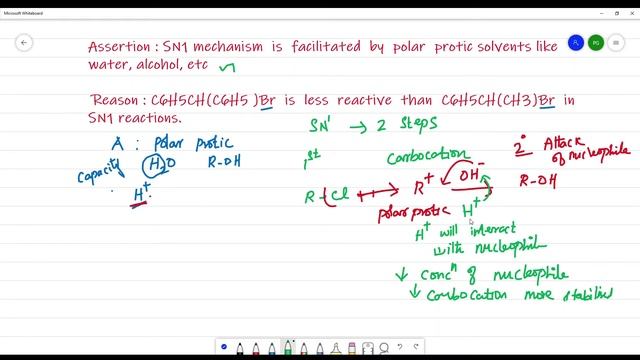 Microsoft Whiteboard
PG
Assertion : SN1 mechanism is facilitated by polar protic solvents like
water, alcohol, etc
Reason : C6H5CH(C6H5 )Br is less reactive than C6H5CH(CH3)Br in
SN1 reactions.
SN1 → 2 Steps
A : polar protic
H2O R-OH
Capacity
H+
1st Carbocation
R-Cl → R+ OH-
2° Attack
of nucleophile
R-OH
polar protic H+
H+ will interract
with nucleophile
↓ concn of nucleophile
↓ carbocation more stabilised